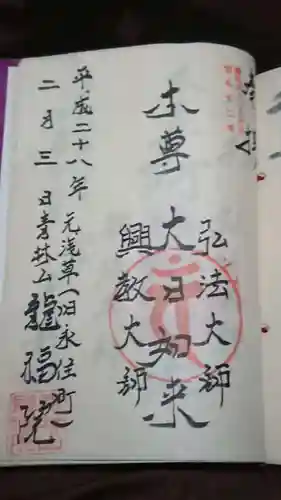 奉拝
弘法大師
本尊 大日如来
興教大師
平成二十八年 元浅草(旧永住町)
二月三日 青林山 龍福院